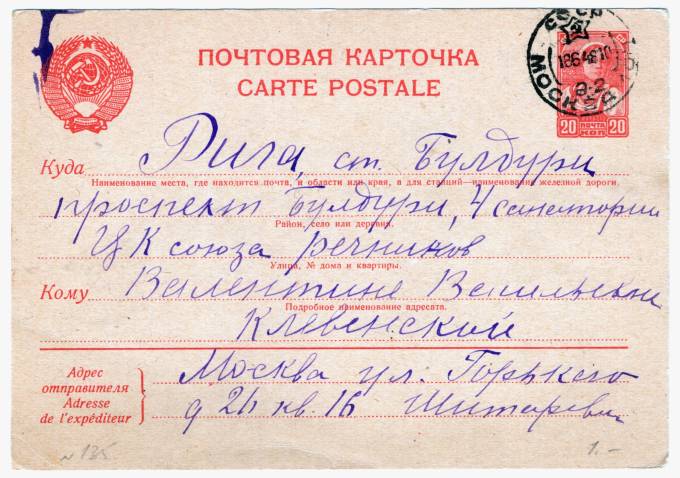 ПОЧТОВАЯ КАРТОЧКА
CARTE POSTALE
СССР
18646 10
МОСКВА
20 ПОЧТА КОП 20
Куда Рига, ст. Булдури
Наименование места, где находится почта, и области или края, а для станций—наименование железной дороги.
проспект Булдури, 4 санатории
Район, село или деревня.
ЦК союза речников
Улица, № дома и квартиры.
Кому Валентине Васильевне
Подробное наименование адресата.
Клевенской
Адрес отправителя
Adresse de l'expéditeur
Москва ул. Горького
д 26 кв. 16
№ 135
1.-